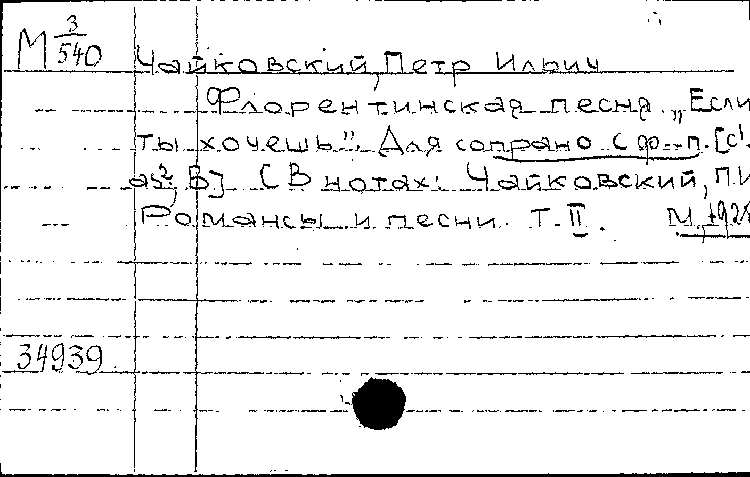 М 3/540 Чайковский, Петр Ильич
Флорентинская песня. „Если
ты хочешь". Для сопрано с ф-п. [c¹.
as², В] (В нотах: Чайковский, П.И
Романсы и песни. Т. II. М. 192
34939